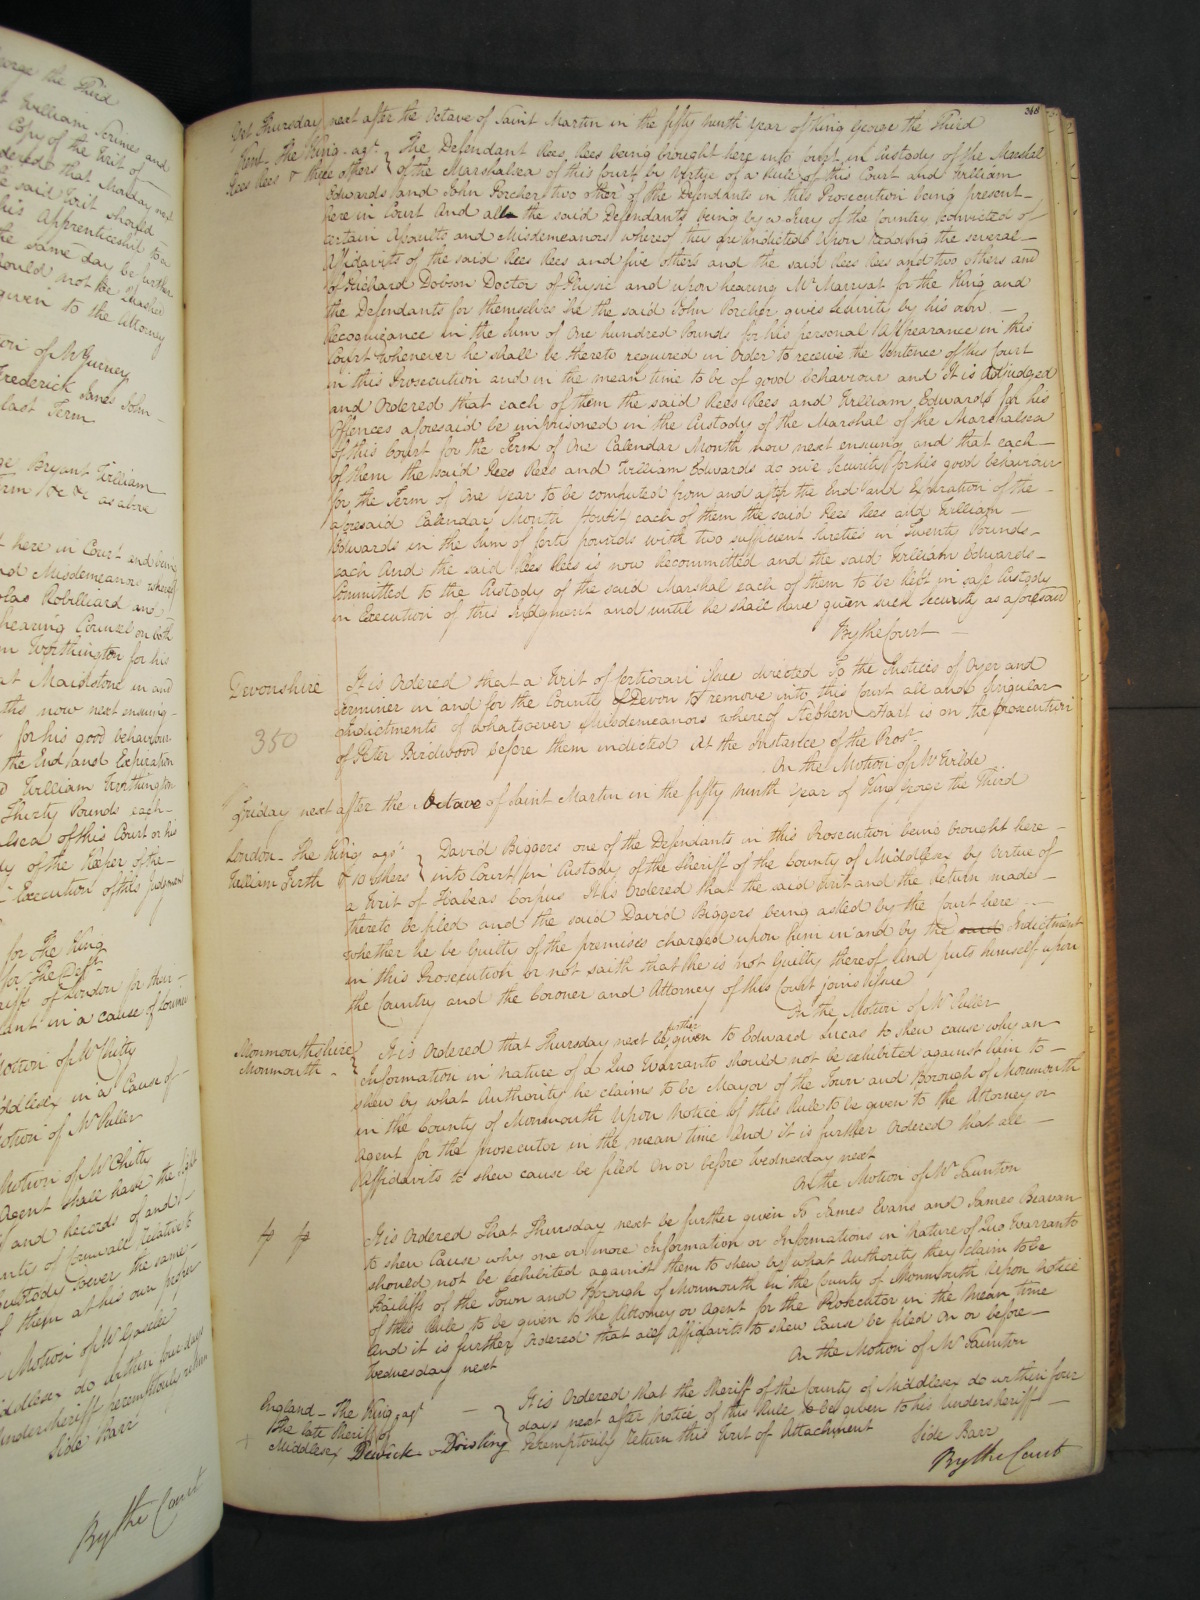 eorge the Third
William Scrines and
Copy of the Writ of
dered that Monday next
e said Writ should
his Apprenticeship to a
the same day be further
should not be
given to the Attorney
ion of Mr Gurney
Frederick James John
last Term
ge Bryant William
Term &c &c as above
t here in Court and being
nd Misdemeanor whereof
olas Robilliard and
hearing Counsel on both
m Worthington for his
at Maidstone in and
nths now next ensuing
for his good behaviour
the End and Expiration
William Worthington
Thirty Pounds each
alsea of this Court or his
dy of the Keeper of the
Execution of this Judgment
for the King
for the Deft
riff of London for their
ant in a cause of
Motion of Mr Chitty
iddlesex in a Cause of
Motion of Mr Puller
Motion of Mr Chitty
Agent shall have the
and Records of and
nty of Cornwall relative to
Custody Power the same
of them at his own proper
Motion of Mr Gaselee
iddlesex do within four days
undersheriff peremptorily return
Side Barr
By the Court
368
Yet Thursday next after the Octave of Saint Martin in the fifty ninth Year of King George the Third
Kent The King agt } The Defendant Rees Rees being brought here into Court in Custody of the Marshal
Rees Rees & three others } of the Marshalsea of this Court by Virtue of a Rule of this Court and William
Edwards and John Porcher two other of the Defendants in this Prosecution being present
here in Court And all the said Defendants being by a Jury of the Country convicted of
certain Assaults and Misdemeanors whereof they are indicted Upon Reading the several
Affidavits of the said Rees Rees and five others and the said Rees Rees and two others and
of Richard Dobson Doctor of Physic and upon hearing Mr Marryat for the King and
the Defendants for themselves He the said John Porcher gives Security by his own
Recognizance in the Sum of One hundred Pounds for his personal Appearance in this
Court whenever he shall be thereto required in Order to receive the Sentence of this Court
in this Prosecution and in the mean time to be of good behaviour and It is Adjudged
and Ordered that each of them the said Rees Rees and William Edwards for his
Offences aforesaid be imprisoned in the Custody of the Marshal of the Marshalsea
of this Court for the Term of One Calendar Month now next ensuing and that each
of them the said Rees Rees and William Edwards do give Security for his good behaviour
for the Term of One Year to be computed from and after the End and Expiration of the
aforesaid Calendar Month (towit) each of them the said Rees Rees and William
Edwards in the Sum of forty pounds with two sufficient Sureties in Twenty Pounds
each And the said Rees Rees is now Recommitted and the said William Edwards
Committed to the Custody of the said Marshal each of them to be kept in safe Custody
in Execution of this Judgment and until he shall have given such Security as aforesaid
By the Court
Devonshire It is Ordered that a Writ of Certiorari issue directed To the Justices of Oyer and
terminer in and for the County of Devon to remove into this Court all and Singular
350 Indictments of whatsoever Misdemeanors whereof Stephen Hart is on the prosecution
of Peter Birdwood before them indicted At the Instance of the Prosr
On the Motion of Mr Wilde
Friday next after the Octave of Saint Martin in the fifty ninth Year of King George the Third
London The King agt } David Biggers one of the Defendants in this Prosecution being brought here
William Firth & 10 others } into Court in Custody of the Sheriff of the County of Middlesex by Virtue of
a Writ of Habeas Corpus It is Ordered that the said Writ and the Return made
thereto be filed and the said David Biggers being asked by the Court here
whether he be Guilty of the premises charged upon him in and by the said Indictment
in this Prosecution or not saith that he is not Guilty thereof and puts himself upon
the Country and the Coroner and Attorney of this Court joins Issue
On the Motion of Mr Puller
Monmouthshire } It is Ordered that Thursday next be further given to Edward Lucas to shew cause why an
Monmouth } Information in nature of a Quo Warranto should not be exhibited against him to
shew by what Authority he claims to be Mayor of the Town and Borough of Monmouth
in the County of Monmouth Upon Notice of this Rule to be given to the Attorney or
Agent for the Prosecutor in the mean time And it is further Ordered that all
Affidavits to shew cause be filed On or before Wednesday next
On the Motion of Mr Taunton
It is Ordered That Thursday next be further given To James Evans and James Beavan
to shew Cause why one or more Information or Informations in nature of Quo Warranto
should not be exhibited against them to shew by what Authority they claim to be
Bailiffs of the Town and Borough of Monmouth in the County of Monmouth Upon Notice
of this Rule to be given to the Attorney or Agent for the Prosecutor in the mean time
And it is further Ordered that all Affidavits to shew Cause be filed On or before
Wednesday next
On the Motion of Mr Taunton
England The King agt } It is Ordered that the Sheriff of the County of Middlesex do within four
The late Sheriff of } days next after Notice of this Rule to be given to his Undersheriff
Middlesex Dewick Peremptorily return this Writ of Attachment Side Barr
By the Court